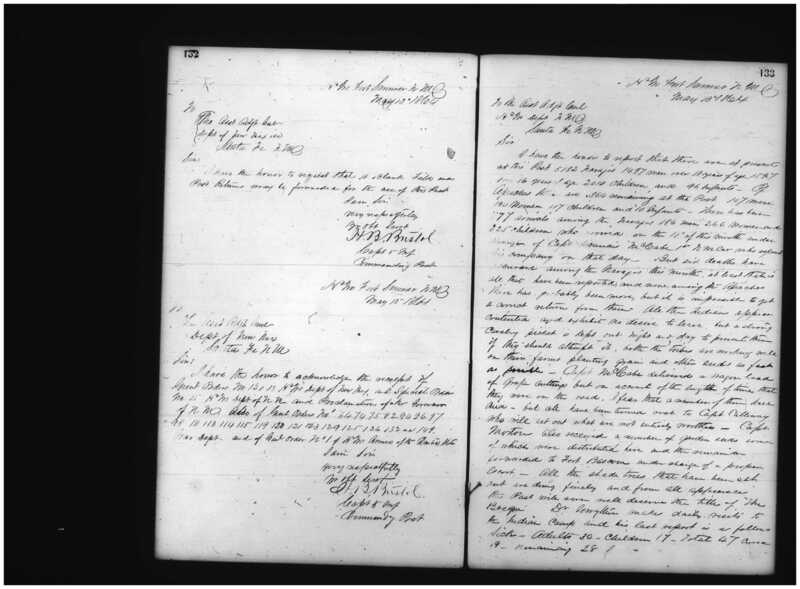 132
Hd Qrs Fort Sumner N.M.
May 15th 1864
To
The Asst Adjt Genl
Dept of New Mexico
Santa Fe N.M.
Sir
I have the honor to request that a blank Field and
Post Returns may be forwarded for the use of this Post
I am Sir
Very respectfully
Yr obt Servt
H. B. Bristol
Capt 5 Inf
Commanding Post
Hd Qrs Fort Sumner N.M.
May 15th 1864
To
The Asst Adjt Genl
Dept of New Mex
Santa Fe N.M.
Sir
I have the honor to acknowledge the receipt of
Genl Orders No 12 & 13 Hd Qrs Dept of New Mex, and Special Order
No 15 Hd Qrs Dept of N.M. and Proclamation of the Governor
of N.M. Also of Genl Orders No
110 113 114 115 119 120 121 123 129 125 126 132 149
War Dept. and of Genl Order No 1 of Hd Qrs Armies of the United States
I am Sir
Very respectfully
Yr obt Servt
H. B. Bristol
Capt 5 Inf
Commandg Post
133
Hd Qrs Fort Sumner N.M.
May 15th 1864
To the Asst Adjt Genl
Hd Qrs Dept N.M.
Santa Fe N.M.
Sir
I have the honor to report that there are at present
at this Post 5182 Navajos 1487 men over 18 years of age 1597
16 years of age 2014 Children and 96 Infants - Of
Apaches there are remaining at the Post 107 men
Women 107 Children and 10 Infants - There has been
777 arrivals among the Navajos 186 men 266 Women and
325 children who arrived on the 11th of this month under
charge of Capt McCabe 1st N.M. Cav who rejoined
his company on that day - But six deaths have
occurred among the Navajos this month, at least that is
all that have been reported and none among the Apaches
there has probably been more, but it is impossible to get
a correct return from them All the Indians appear
contented and exhibit no desire to leave but a strong
Cavalry picket is kept out night and day to prevent them
if they should attempt it. both the tribes are working well
on their farms planting grain and other seeds as fast
as possible - Capt McCabe delivered a wagon load
of Grape Cuttings but on account of the length of time that
they were on the road, I fear that a number of them have
died - but all have been turned over to Capt Calloway
who will set out what are not entirely worthless - Capt
Morton also received a number of garden seeds some
of which were distributed here and the remainder
forwarded to Fort Bascom under charge of a proper
Escort - All the shade trees that have been set
out are doing finely and from all appearance
the Post will soon well deserve the title of "The
Bosque" Dr makes daily visits to
the Indian Camp and his last report is as follows
Sick - Adults 30 - Children 17 - Total 47 cured
19 - remaining 28